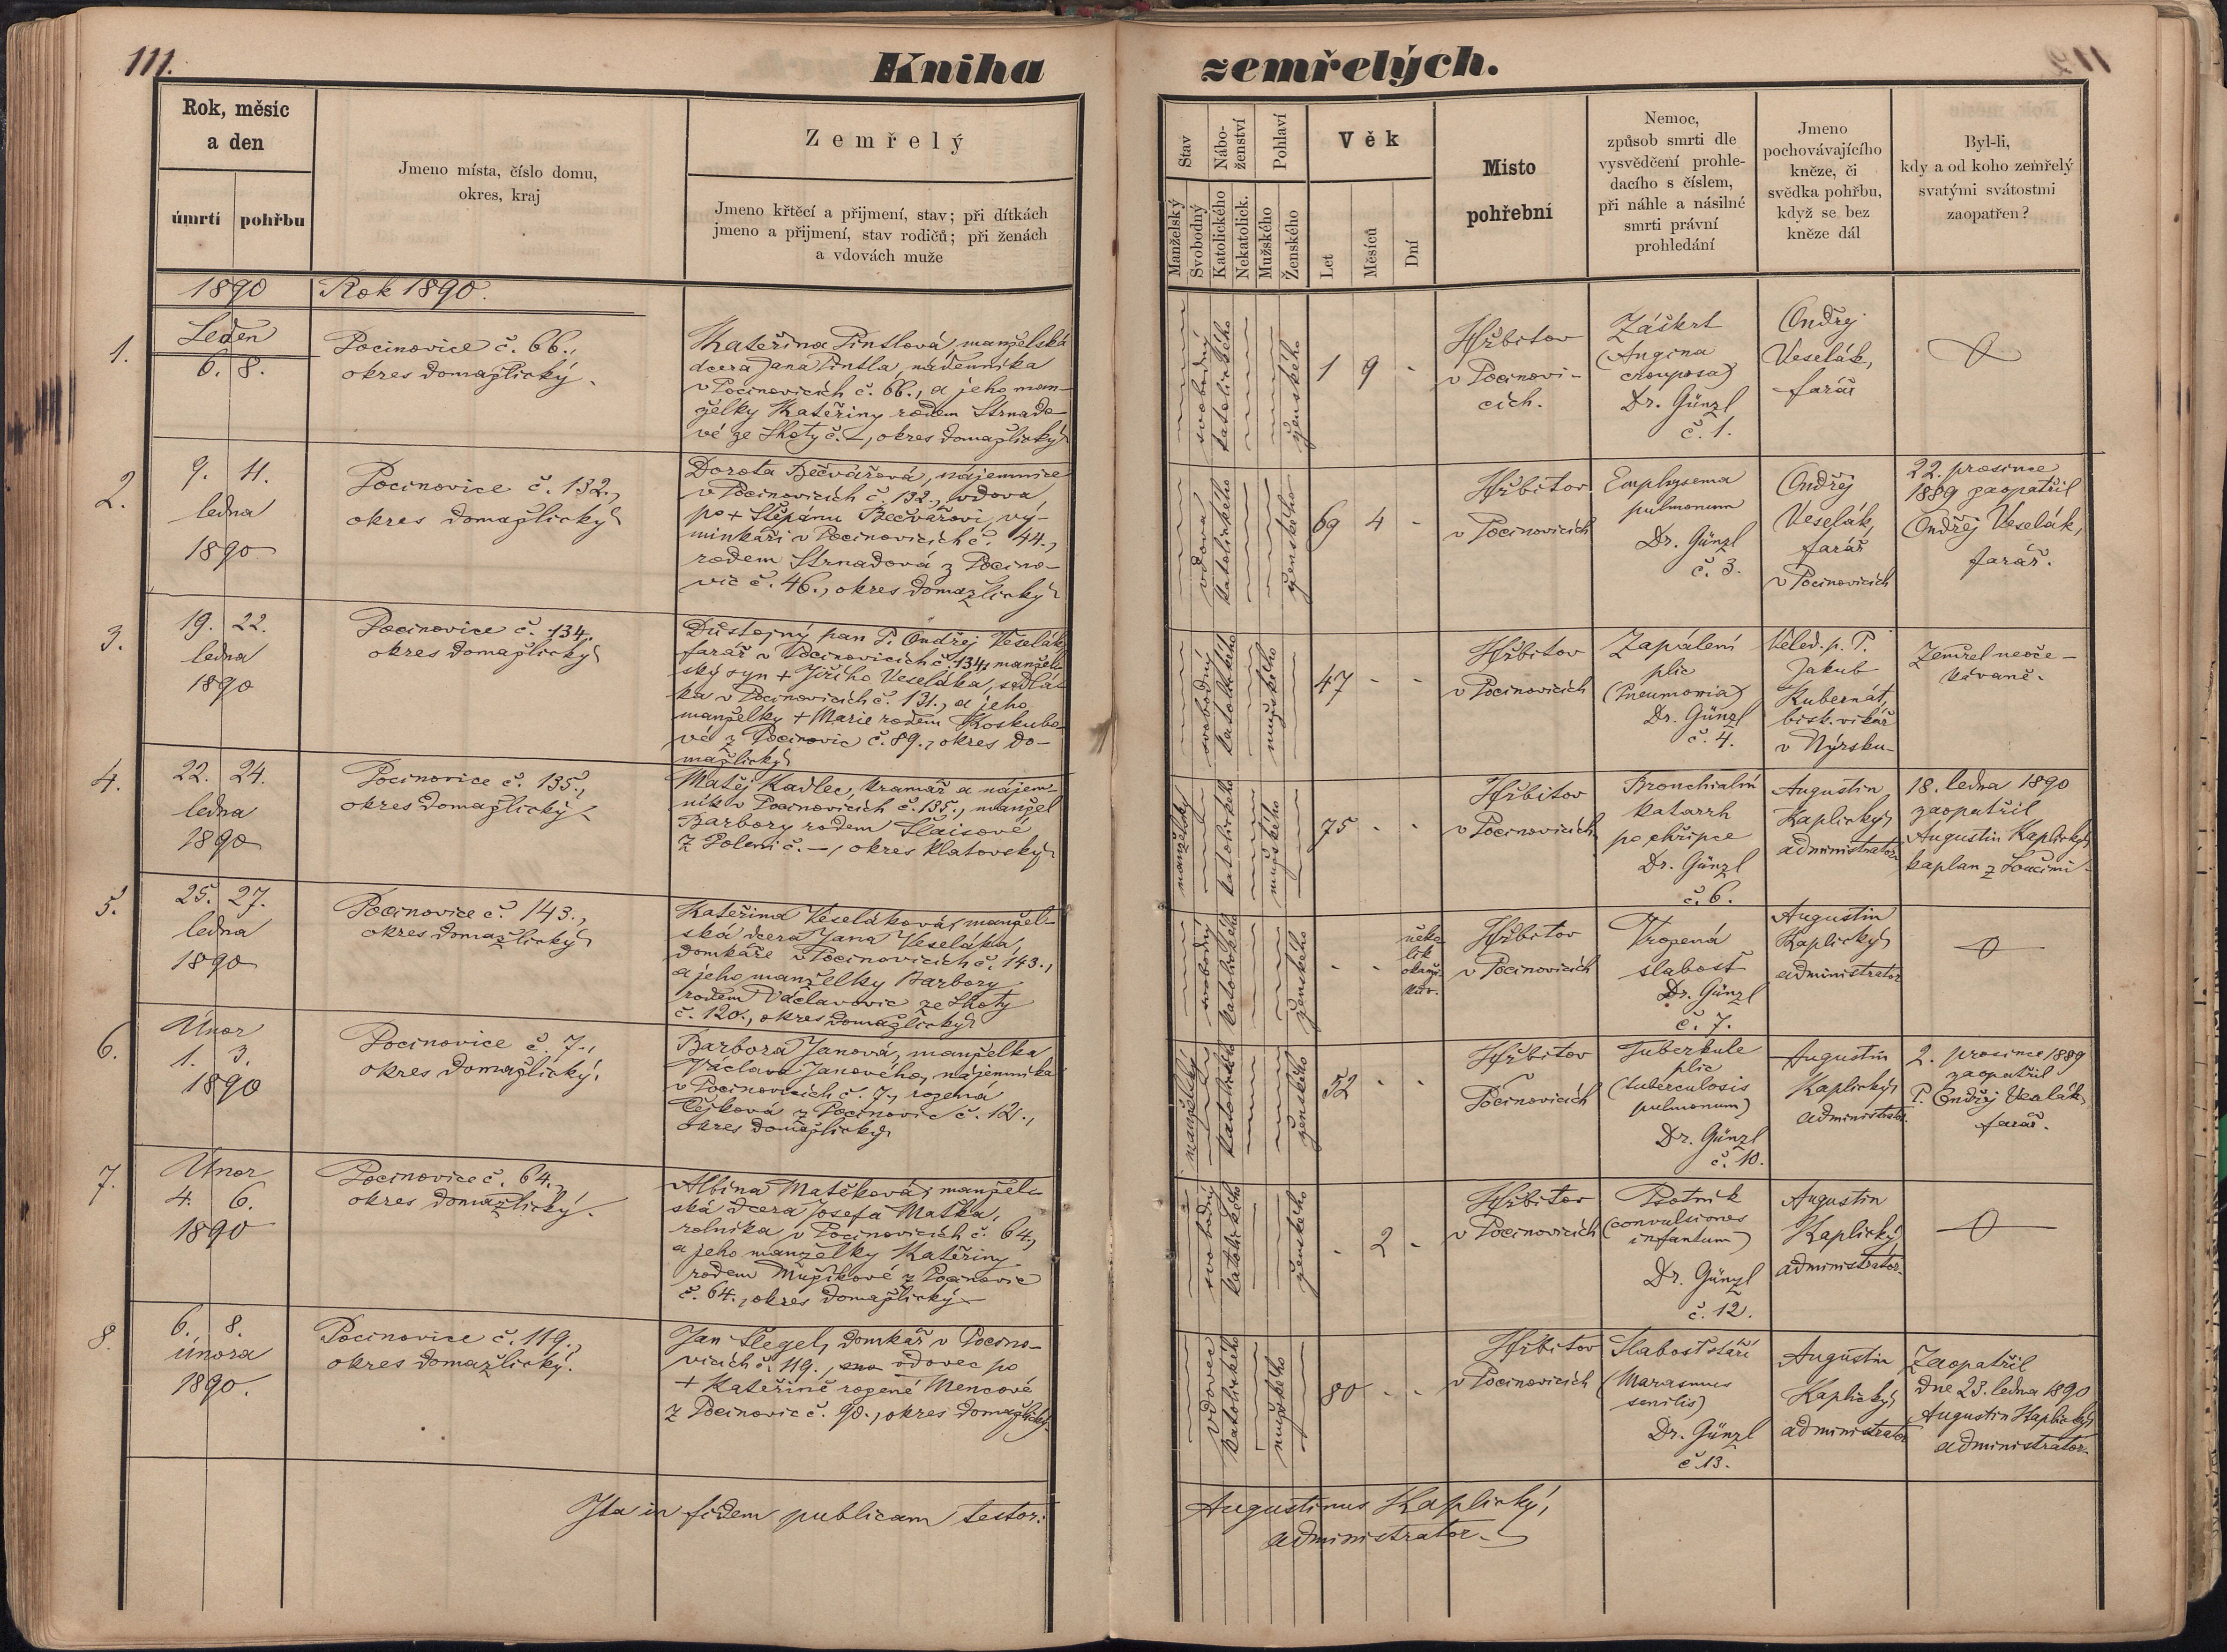 111.
Kniha zemřelých.
Rok, měsíc
a den
úmrtí
pohřbu
Jmeno místa, číslo domu,
okres, kraj
Zemřelý
Jmeno křtěcí a příjmení, stav; při dítkách
jmeno a příjmení, stav rodičů; při ženách
a vdovách muže
Stav
Manželský
Svobodný
Nábo-
ženství
Katolického
Nekatolick.
Pohlaví
Mužského
Ženského
Věk
Let
Měsíců
Dní
Místo
pohřební
Nemoc,
způsob smrti dle
vysvědčení prohle-
dacího s číslem,
při náhle a násilné
smrti právní
prohledání
Jmeno
pochovávajícího
kněze, či
svědka pohřbu,
když se bez
kněze dál
Byl-li,
kdy a od koho zemřelý
svatými svátostmi
zaopatřen?
1890
Rok 1890.
1.
Leden
6. 8.
Pocinovice č. 66.,
okres domažlický.
Kateřina Pintlová, manželská
dcera Jana Pintla, nádenníka
v Pocinovicích č. 66., a jeho man-
želky Kateřiny rodem Strnado-
vé ze Lhoty č. –, okres domažlický
svobodný
katolického
ženského
1 9 -
Hřbitov
v Pocinovi-
cích.
Záškrt
(Angina
crouposa)
Dr. Günzl
č. 1.
Ondřej
Veselák,
farář
2.
9. 11.
ledna
1890
Pocinovice č. 132.,
okres domažlický
Dorota Bečvářová, nájemnice
v Pocinovicích č. 132., vdova
po + Štěpánu Bečvářovi, vý-
minkáři v Pocinovicích č. 44.,
rodem Strnadová z Pocino-
vic č. 46., okres domažlický
vdova
katolického
ženského
69 4 -
Hřbitov
v Pocinovicích
Emphysema
pulmonum
Dr. Günzl
č. 3.
Ondřej
Veselák,
farář
v Pocinovicích
22. prosince
1889 zaopatřil
Ondřej Veselák,
farář.
3.
19. 22.
ledna
1890
Pocinovice č. 134.
okres domažlický
Důstojný pan P. Ondřej Veselák,
farář v Pocinovicích č. 134, manžel-
ský syn + Jiřího Veseláka, sedlá-
ka v Pocinovicích č. 131., a jeho
manželky + Marie rodem Koskubo-
vé z Pocinovic č. 89., okres do-
mažlický
svobodný
katolického
mužského
47 - -
Hřbitov
v Pocinovicích
Zapálení
plic
(Pneumonia)
Dr. Günzl
č. 4.
Veled. p. P.
Jakub
Kubernát,
bisk. vikář
v Nýrsku
Zemřel neoče-
kávaně.
4.
22. 24.
ledna
1890
Pocinovice č. 135.,
okres domažlický
Matěj Kadlec, kramář a nájem-
ník v Pocinovicích č. 135., manžel
Barbory rodem Slaisové
z Poleni č. –, okres klatovský
manželský
katolického
mužského
75 - -
Hřbitov
v Pocinovicích
Bronchialní
katarrh
po chřipce
Dr. Günzl
č. 6.
Augustin
Kaplický
administrator
18. ledna 1890
zaopatřil
Augustin Kaplický
kaplan z Loučimi
5.
25. 27.
ledna
1890
Pocinovice č. 143.,
okres domažlický
Kateřina Veseláková, manžel-
ská dcera Jana Veseláka,
domkáře v Pocinovicích č. 143.,
a jeho manželky Barbory
rodem Václavovic ze Lhoty
č. 120., okres domažlický
svobodný
katolického
ženského
- - něko-
lik
okamž.
ků.
Hřbitov
v Pocinovicích
Vrozená
slabosť
Dr. Günzl
č. 7.
Augustin
Kaplický
administrator
6.
Únor
1. 3.
1890
Pocinovice č. 7.,
okres domažlický.
Barbora Janová, manželka
Václava Janového, nájemníka
v Pocinovicích č. 7., rozená
Čejková z Pocinovic č. 12.,
okres domažlický
manželský
katolického
ženského
52 - -
Hřbitov
v
Pocinovicích
Tuberkule
plic
(tuberculosis
pulmonum)
Dr. Günzl
č. 10.
Augustin
Kaplický
administrator.
2. prosince 1889
zaopatřil
P. Ondřej Veselák
farář.
7.
Únor
4. 6.
1890
Pocinovice č. 64.,
okres domažlický.
Albína Matěková, manžel-
ská dcera Josefa Maťka,
rolníka v Pocinovicích č. 64.,
a jeho manželky Kateřiny
rodem Mužíkové z Pocinovic
č. 64., okres domažlický
svobodný
katolického
ženského
- 2 -
Hřbitov
v Pocinovicích
Psotník
(convulsiones
infantum)
Dr. Günzl
č. 12.
Augustin
Kaplický
administrator.
8.
6. 8.
února
1890.
Pocinovice č. 119.,
okres domažlický.
Jan Šlegel, domkář v Pocino-
vicích č. 119., vdovec po
+ Kateřině rozené Mencové
z Pocinovic č. 90., okres domažlický.
vdovec
katolického
mužského
80 - -
Hřbitov
v Pocinovicích
Slabosť stáří
(Marasmus
senilis)
Dr. Günzl
č. 13.
Augustin
Kaplický
administrator
Zaopatřil
dne 23. ledna 1890
Augustin Kaplický
administrator.
Ita in fidem publicam testor:
Augustinus Kaplický,
administrator.